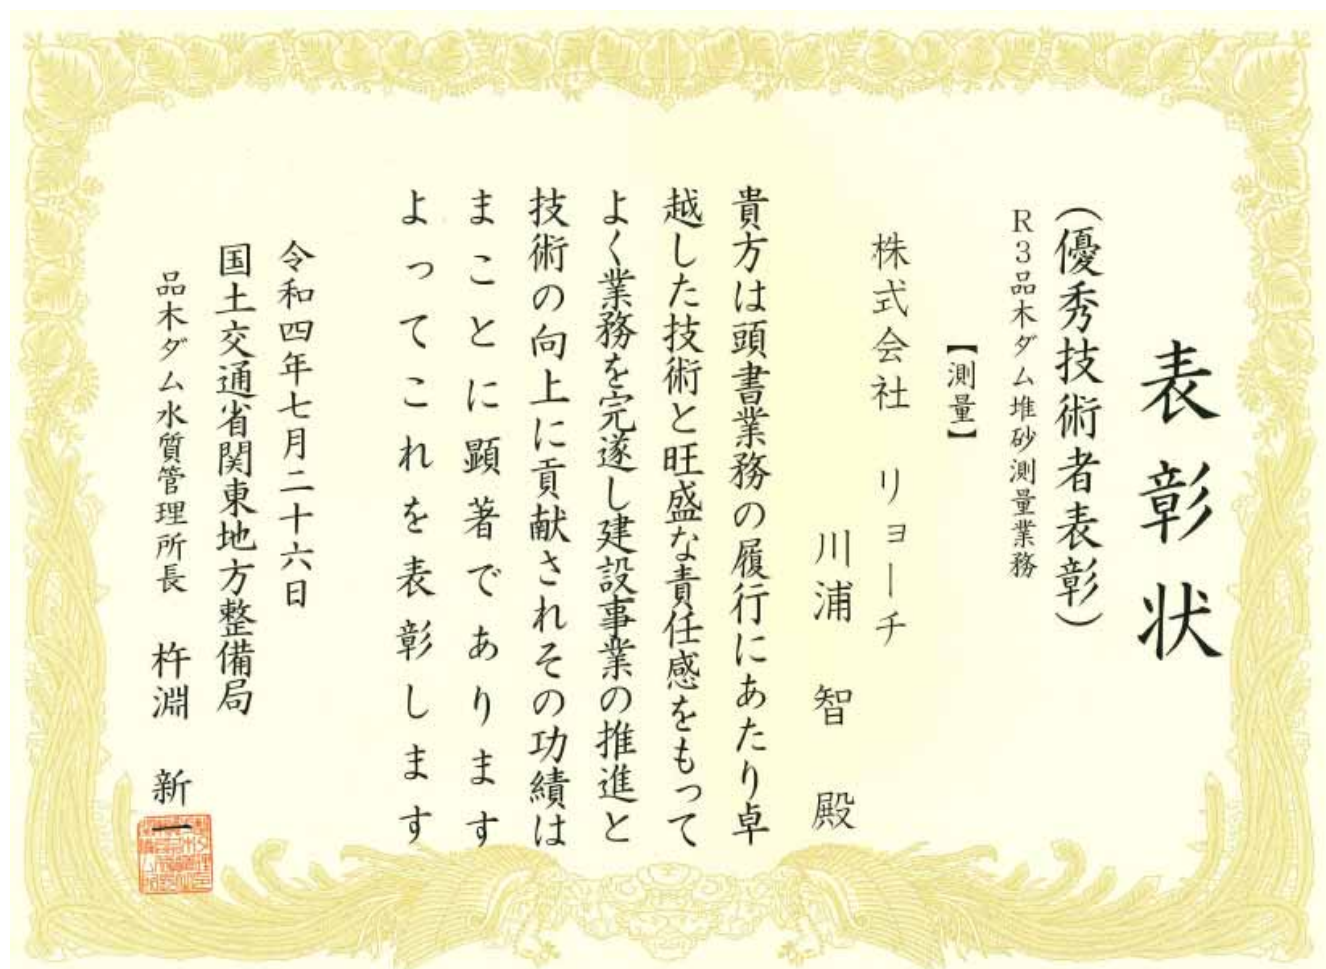 表彰状
(優秀技術者表彰)
R3品木ダム堆砂測量業務
【測量】
株式会社 リョーチ
川浦 智 殿
貴方は頭書業務の履行にあたり卓
越した技術と旺盛な責任感をもって
よく業務を完遂し建設事業の推進と
技術の向上に貢献されその功績は
まことに顕著であります
よってこれを表彰します
令和四年七月二十六日
国土交通省関東地方整備局
品木ダム水質管理所長 杵淵 新一